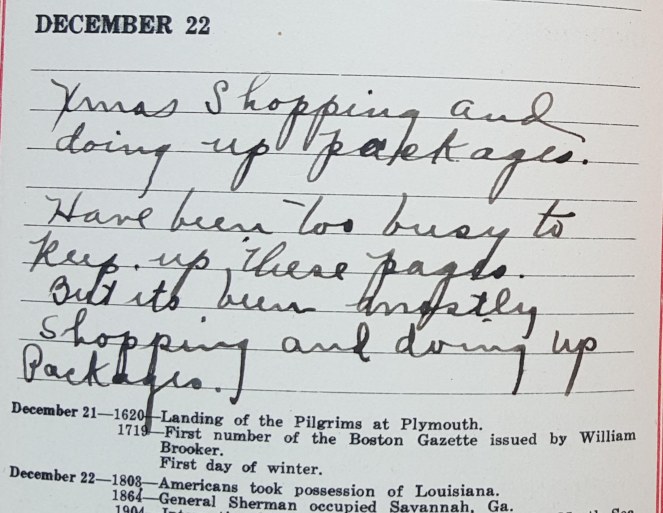 DECEMBER 22
Xmas Shopping and
doing up packages.
Have been too busy to
keep up these pages.
But its been mostly
Shopping and doing up
Packages.
December 21—1620—Landing of the Pilgrims at Plymouth.
1719—First number of the Boston Gazette issued by William
Brooker.
First day of winter.
December 22—1808—Americans took possession of Louisiana.
1864—General Sherman occupied Savannah, Ga.
1904